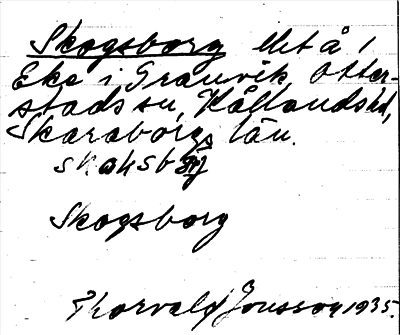 Skogsborg Utå 1
Eke i Granvik Otter-
stads sn, Kållands hd,
Skaraborgs län.
skoksbårj
Skogsborg
Thorvald Jonsson 1935.